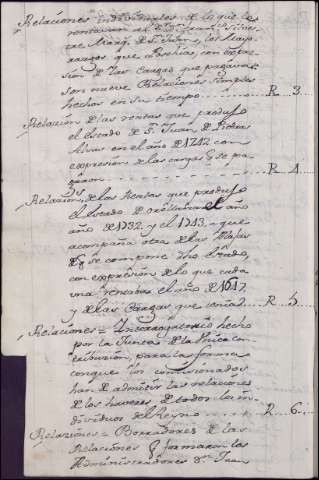 Relaciones individuales de lo que le
rentavan al
Marq. de S. Juan, y los Mayo-
razgos que Posehia, con expre-
sion de las Cargas que pagava
son nueve Relaciones simples
hechas en su tiempo R. 3.
Relación de las rentas que produjo
el Estado de S. Juan de Piedras
Alvas en el año de 1742 con
expresion de las cargas q̃ se pa-
garon R. 4.
Relacion, de las Rentas que produjo
el Estado de Orellana el año
año de 1732, y el 1743, a que
acompaña otra de las Villas
de q̃ se compone dho Estado,
con expresion de lo que cada
una rentaba el año de 1647
y de las Cargas que tenia R. 5.
Relaciones = Interrogatorio hecho
por la Junta de la Unica con-
tribuzion, para la forma
con que los comisionados
han de admitir las relaciones
de los haveres de todos los in-
dividuos del Reyno R. 6.
Relaziones = Borradores de las
Relaciones q̃ formaron los
Administradores dn Juan